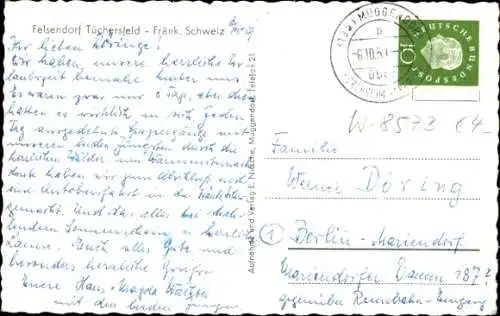 Felsendorf Tüchersfeld - Fränk. Schweiz
Ihr lieben Dörings!
Wir haben, unsere herrliche Ur-
laubszeit beinahe hinter uns.
Es waren zwar nur 8 Tag, aber die
hatten es wirklich in sich. Jeden
Tag ausgedehnte Spaziergänge mit
unseren beiden Jungens durch die
herrlichen Wälder
haben wir zum Abschluß noch
eine Autobusfahrt in die
gemacht. Und das alles bei strah-
lendem Sonnenschein u. herrlich
Laune. Euch alles Gute und
besonders herzliche Grüße
Eure Hans, Magda
mit den beiden Jungen
Aufnahme und Verlag E. Nitzsche, Muggendorf, Telefon 21
(13a) MUGGENDORF
b
-6.10.59
DEUTSCHE BUNDESPOST
10
W-8573 €4-
Familie
Werner Döring
1 Berlin-Mariendorf
Mariendorfer Damm 187?
gegenüber Rennbahn-Eingang